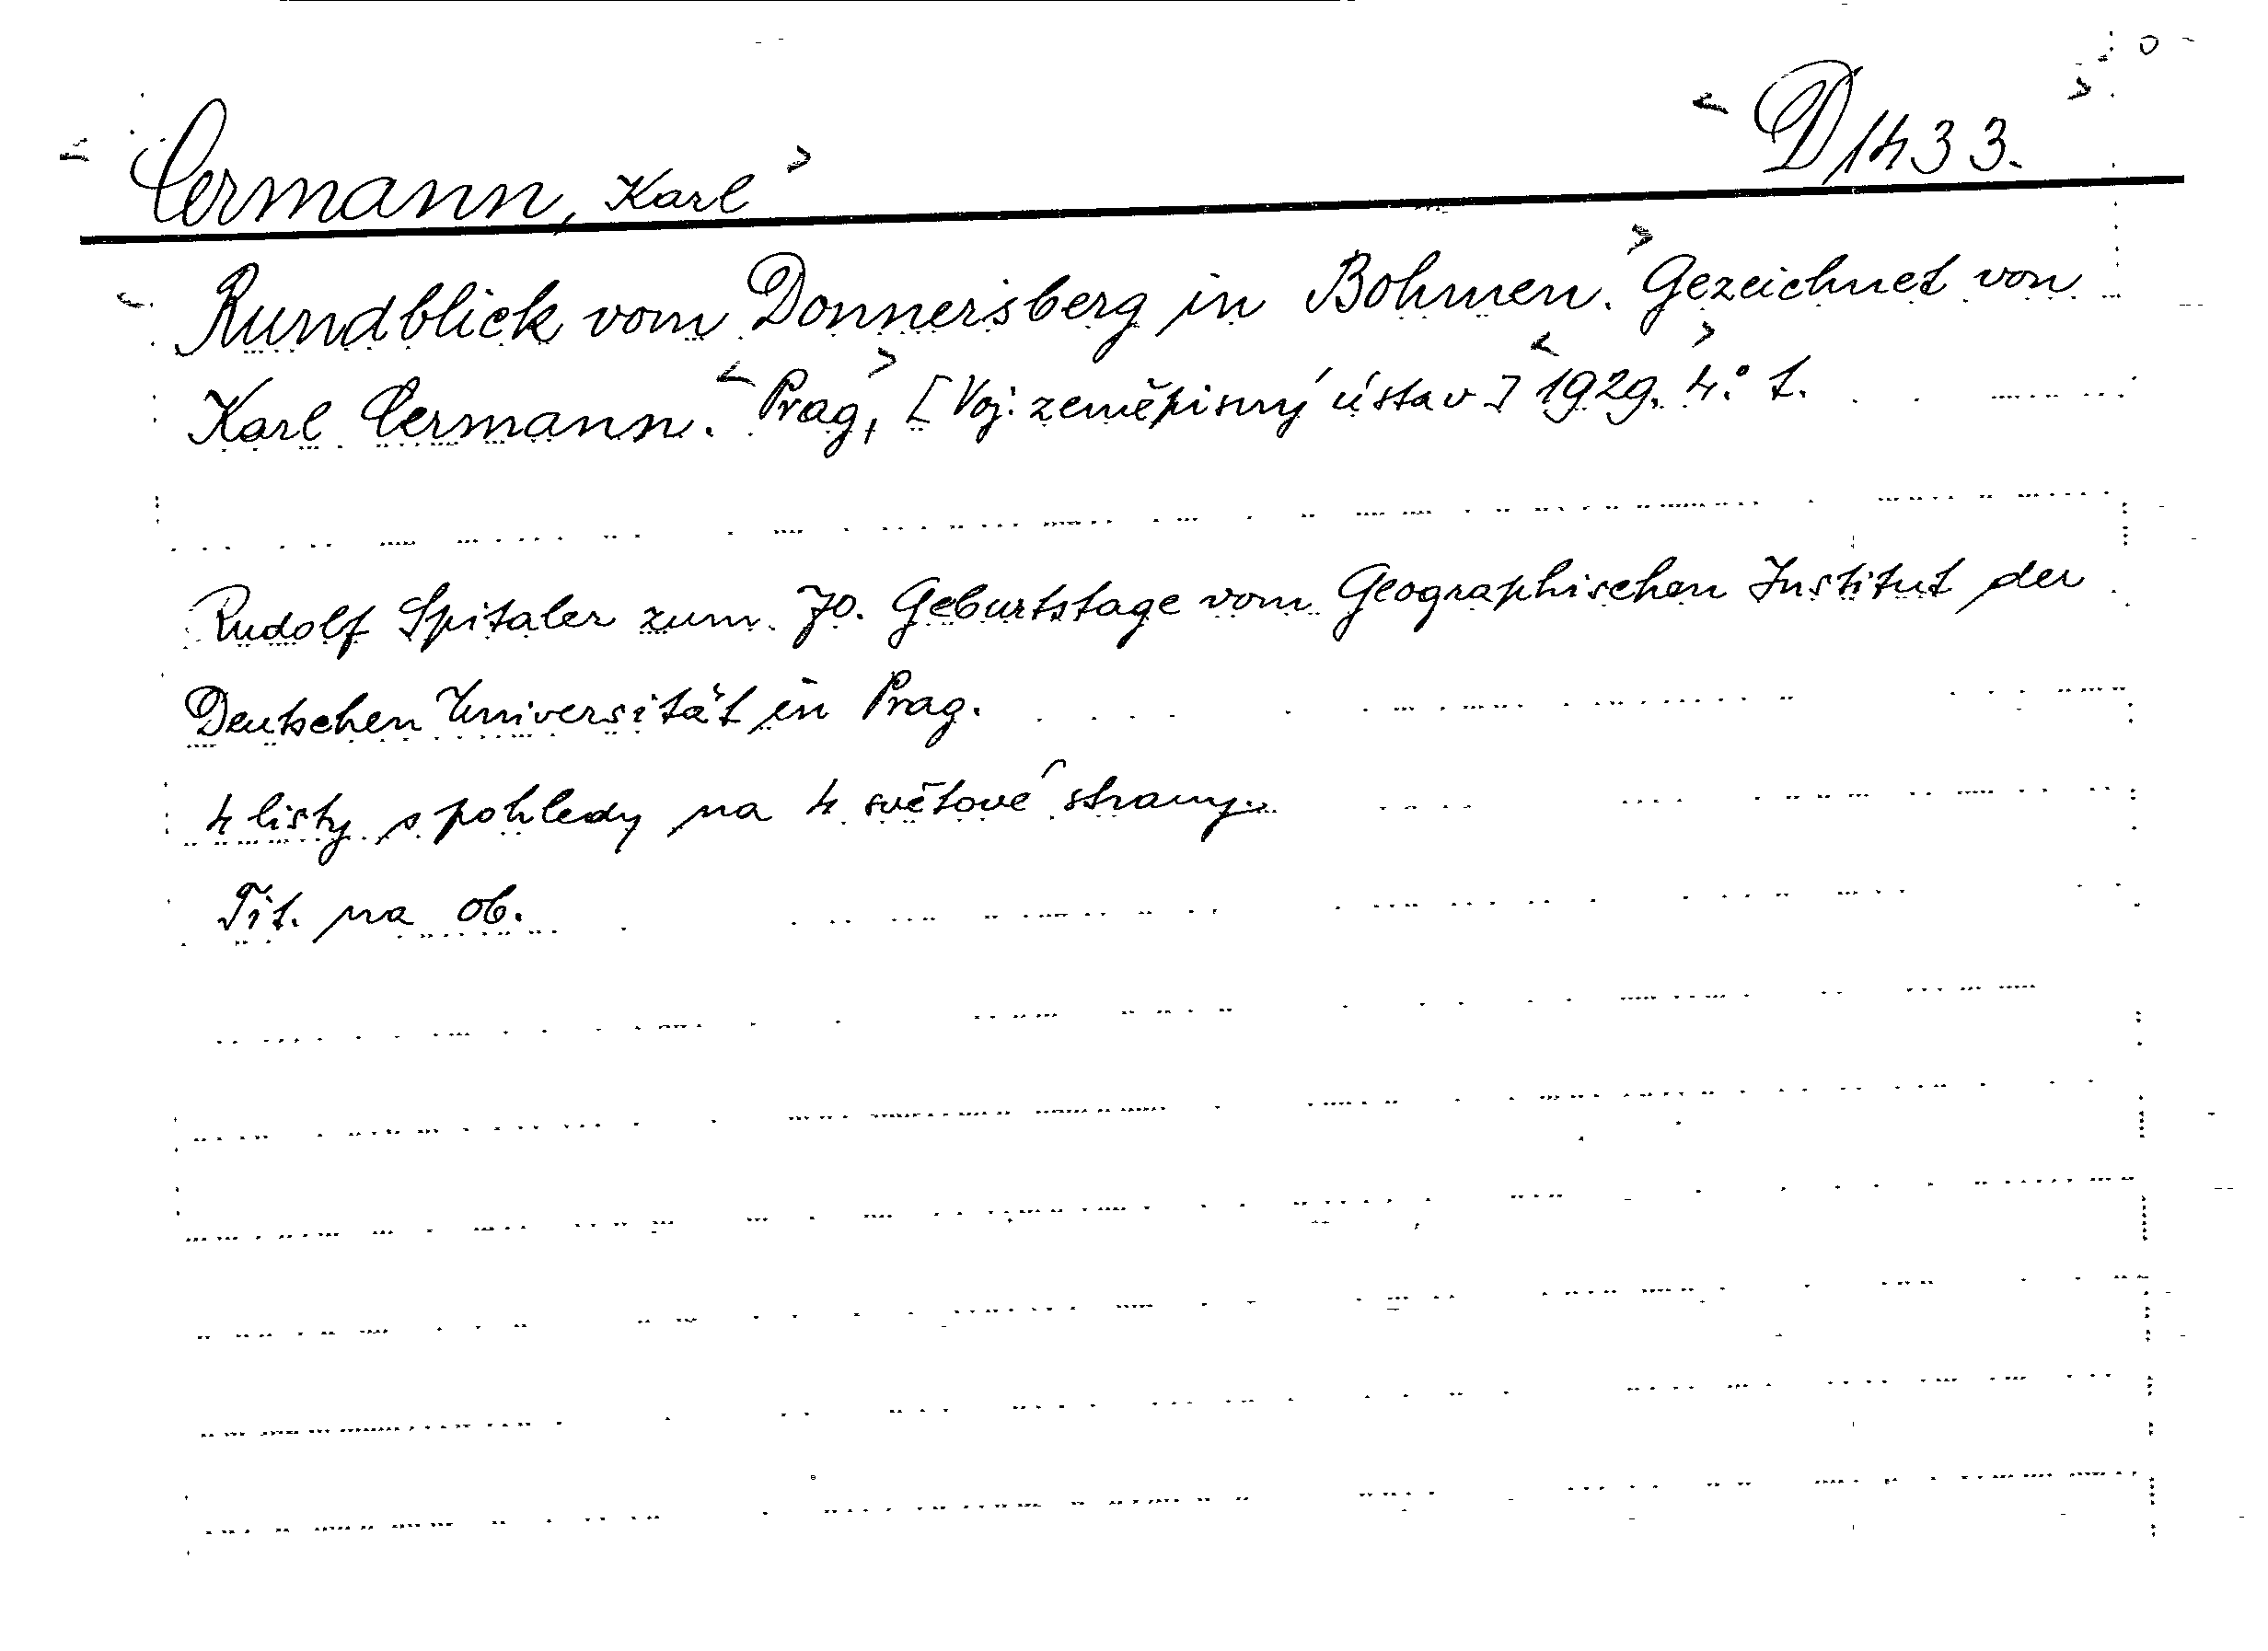 < Cermann, Karl > < D 1433. >
< Rundblick vom Donnersberg in Bohmen. > Gezeichnet von
Karl Cermann. < Prag, > [Voj. zeměpisný ústav] < 1929. > 4.° t.
Rudolf Spitaler zum 70. Geburtstage vom Geographischen Institut der
Deutschen Universität in Prag.
4 listy s pohledy na 4 světové strany.
Tit. na ob.